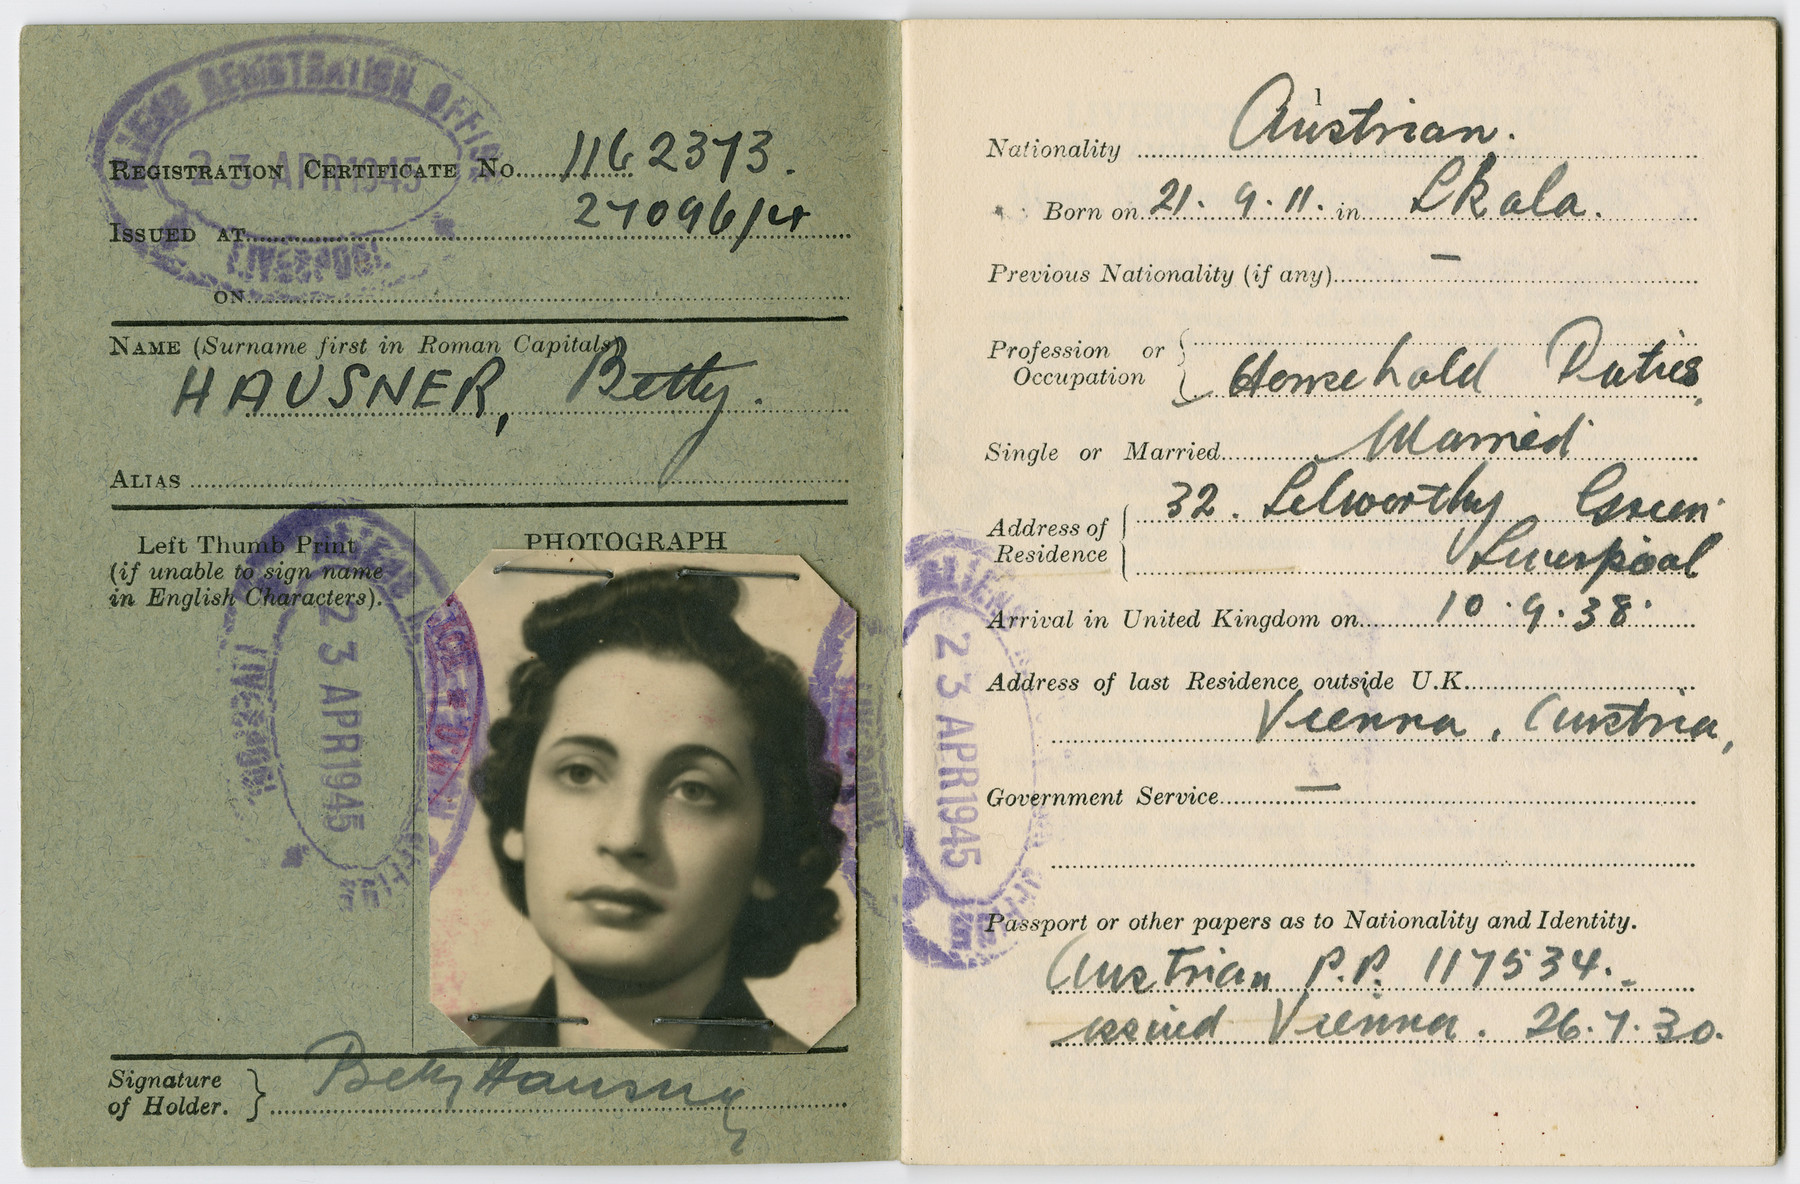 ALIENS REGISTRATION OFFICE
23 APR 1945
LIVERPOOL
REGISTRATION CERTIFICATE No. 1162373.
27096/4
ISSUED AT
ON
NAME (Surname first in Roman Capitals)
HAUSNER, Betty.
ALIAS
Left Thumb Print
(if unable to sign name
in English Characters).
PHOTOGRAPH
23 APR 1945
LIVERPOOL
Signature
of Holder. } Betty Hausner
1
Nationality Austrian.
Born on 21. 9. 11. in Skala.
Previous Nationality (if any) –
Profession or
Occupation } Household Duties
Single or Married Married
Address of
Residence { 32. Selworthy Green
Liverpool
Arrival in United Kingdom on 10. 9. 38.
Address of last Residence outside U.K.
Vienna, Austria,
Government Service –
23 APR 1945
Passport or other papers as to Nationality and Identity.
Austrian P.P. 117534.
issued Vienna. 26.7.30.